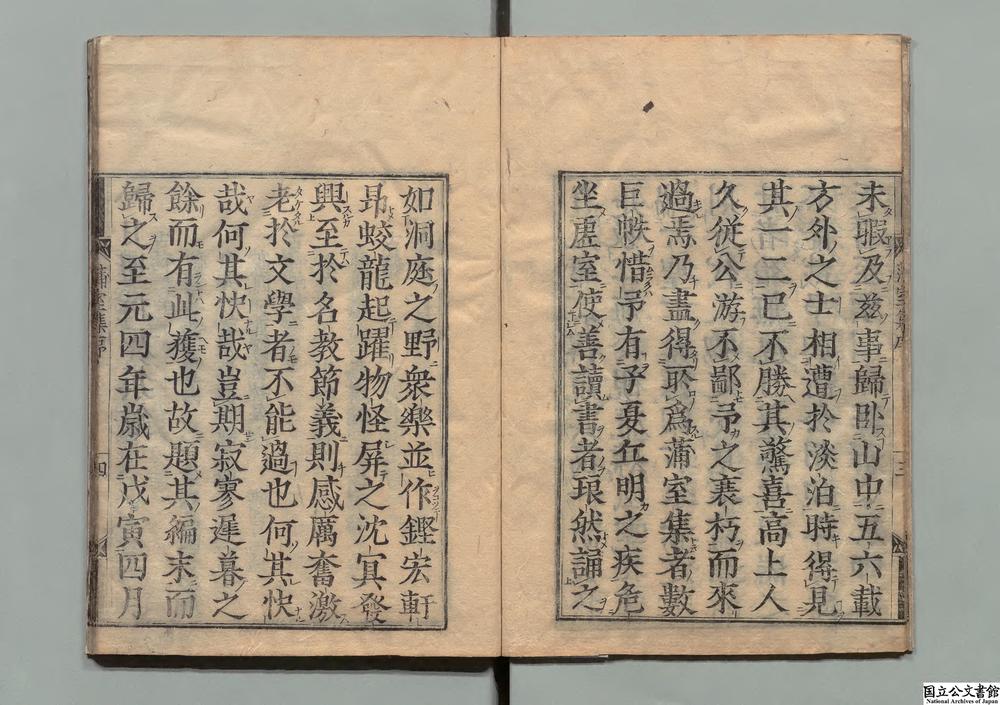 未暇及茲事歸卧山中五六載
方外之士相遭於淡泊時得見
其一二已不勝其驚喜高上人
久從公游不鄙予之衰朽而來
過焉乃盡得所爲蒲室集者數
巨帙惜予有子夏丘明之疾危
坐虛室使善讀書者琅然誦之
如洞庭之野衆樂並作鏗宏軒
昂蛟龍起躍物怪屏之沈冥發
興至於名教節義則感厲奮激
老於文學者不能過也何其快
哉何其快哉豈期寂寥遲暮之
餘而有此獲也故題其編末而
歸之至元四年歲在戊寅四月
蒲室集序
三
四
国立公文書館
National Archives of Japan